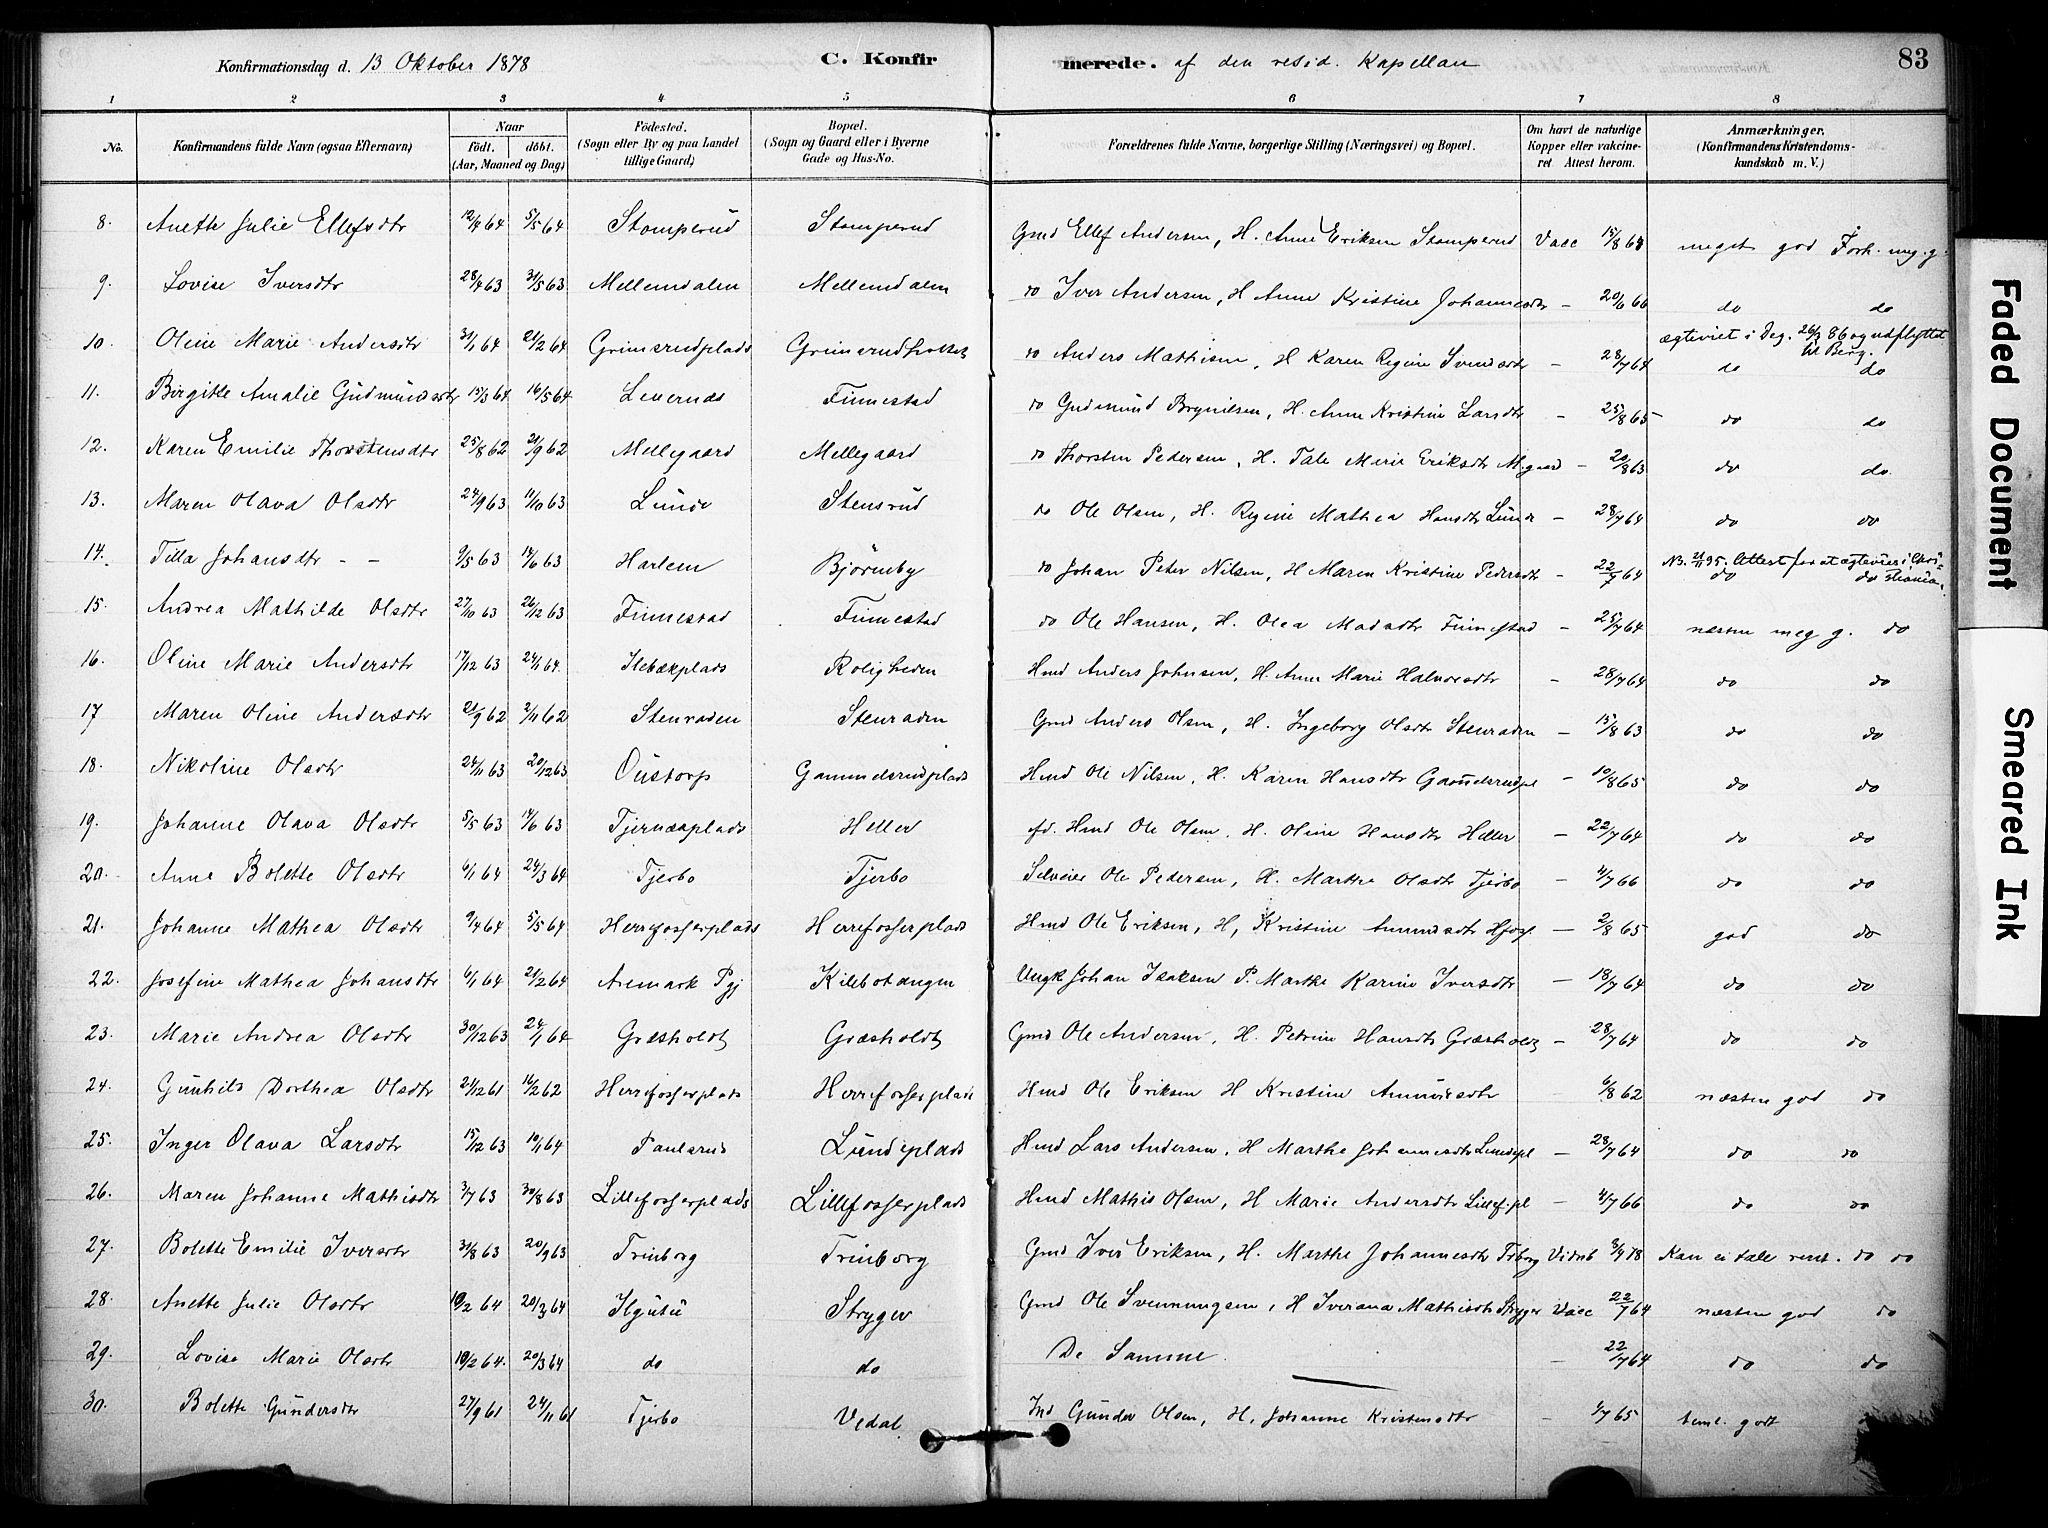 Konfirmationsdag d. 13 Oktober 1878 C. Konfirmerede. af den resid. Kapellan 83
1 2 3 4 5 6 7 8
No. Konfirmandens fulde Navn (ogsaa Efternavn) Naar födt. döbt. (Aar, Maaned og Dag) Födested. (Sogn eller By og paa Landet tillige Gaard) Bopæl. (Sogn og Gaard eller i Byerne Gade og Hus-No. Forældrenes fulde Navne, borgerlige Stilling (Næringsvei) og Bopæl. Om havt de naturlige Kopper eller vakcineret Attest herom. Anmærkninger. (Konfirmandens Kristendomskundskab m. V.)
8. Anette Julie Ellefsdtr 12/4 64 5/5 64 Stomperud Stomperud Gmd Ellef Andersen, H. Anne Eriksen Stomperud Vacc 15/8 64 meget god Forh. meg. g.
9. Lovise Iversdtr 28/4 63 31/5 63 Mellemdalen Mellemdalen do Iver Andersen, H Anne Kristine Johannesdtr - 20/6 66 do do
10. Oline Marie Andersdtr 31/1 64 21/2 64 Grimsrudplads Grimsrudholtet do Anders Mathisen, H Karen Regine Svendsdtr - 28/7 64 ægteviet i Deg. 26/3 86 og udflyttet til Berg. do do
11. Birgitte Amalie Gudmundsdtr 15/3 64 16/5 64 Levernæs Finnestad do Gudmund Brynilsen, H. Anne Kristine Larsdtr - 25/8 65 do do
12. Karen Emilie Thorstensdtr 25/8 62 21/9 62 Mellegaard Mellegaard do Thorsten Pedersen, H. Tale Marie Eriksdtr M.gaard - 20/8 63 do do.
13. Maren Olava Olsdtr 24/9 63 11/10 63 Lunde Stensrud do Ole Olsen, H. Regine Mathea Hansdtr Lunde - 28/7 64 do do
14. Tilla Johansdtr - - 9/5 63 14/6 63 Harlem Björneby do Johan Peter Nilsen, H Maren Kristine Pedersdtr - 22/7 64 NB. 21/11 95. Attest for at ægtevies i Christiania. do do
15. Andrea Mathilde Olsdtr 27/10 63 26/12 63 Finnestad Finnestad do Ole Hansen, H. Olea Madsdtr Finnestad - 25/7 64 næsten meg g. do
16. Oline Marie Andersdtr 17/12 63 24/1 64. Ilebækplads Roligheden Hmd Anders Johnsen, H. Anne Marie Halvorsdtr - 28/7 64 do do
17 Maren Oline Andersdtr 21/9 62 2/11 62 Stenraden Stenraden Gmd Anders Olsen, H. Ingeborg Olsdtr Stenraden - 15/8 63 do do
18. Nikoline Olsdtr 24/11 63 20/12 63 Oustorp Gammelsrudplads Hmd Ole Nilsen, H. Karen Hansdtr Gammelsrudpl - 10/8 65 do do
19. Johanne Olava Olsdtr 5/5 63 14/6 63 Tjernæsplads Heller fd. Hmd Ole Olsen, H. Oline Hansdtr Heller - 22/7 64 do do
20. Anne Bolette Olsdtr 6/1 64 24/3 64 Tjerbo Tjerbo Selveier Ole Pedersen, H. Marthe Olsdtr Tjerbo - 4/7 66 do do
21. Johanne Mathea Olsdtr 9/4 64 5/5 64 Herrefosserplads Herrefosserplads Hmd Ole Eriksen, H, Kristine Amundsdtr Hfosp. - 2/8 65 god do
22. Josefine Mathea Johansdtr 6/1 64 21/2 64 Aremark Pgj Kilebotangen Ungk Johan Isaksen P. Marthe Karine Iversdtr - 18/7 64 do do
23. Marie Andrea Olsdtr 30/12 63 24/1 64 Græsholdt Græsholdt Gmd Ole Andersen, H. Petrine Hansdtr Græsholdt - 28/7 64 do do
24. Gunhild Dorthea Olsdtr 21/12 61 16/2 62 Herrefosserplads Herrefosserplads Hmd Ole Eriksen H Kristine Amundsdtr 6/8 62 næsten god do
25. Inger Olava Larsdtr 15/12 63 10/1 64 Paulsrud Lundeplads Hmd Lars Andersen, H Marthe Johannesdtr Lundepl - 28/7 64 do do
26. Maren Johanne Mathisdtr 3/7 63 30/8 63 Lillefosserplads Lillefosserplads Hmd Mathis Olsen, H Marie Andersdtr Lillef.pl - 4/7 66 do do
27. Bolette Emilie Iversdtr 31/8 63 20/9 63 Trinborg Trinborg Gmd Iver Eriksen, H. Marthe Johannesdtr Trborg Vidnb 3/9 78 Kan ei tale rent. do do
28. Anette Julie Olsdtr 10/2 64 20/3 64 Stryger Gmd Ole Svenningsen, H Iverana Mathisdtr Stryger Vacc 22/7 64 næsten god do
29. Lovise Marie Olsdtr 10/2 64. 20/3 64 do do De Samme. - 22/7 64 do do
30. Bolette Gundersdtr 27/9 61 24/11 61 Tjerbo Vedal Ind Gunder Olsen, H. Johanne Kristensdtr - 4/7 65 teml. godt do
Faded Document
Smeared Ink